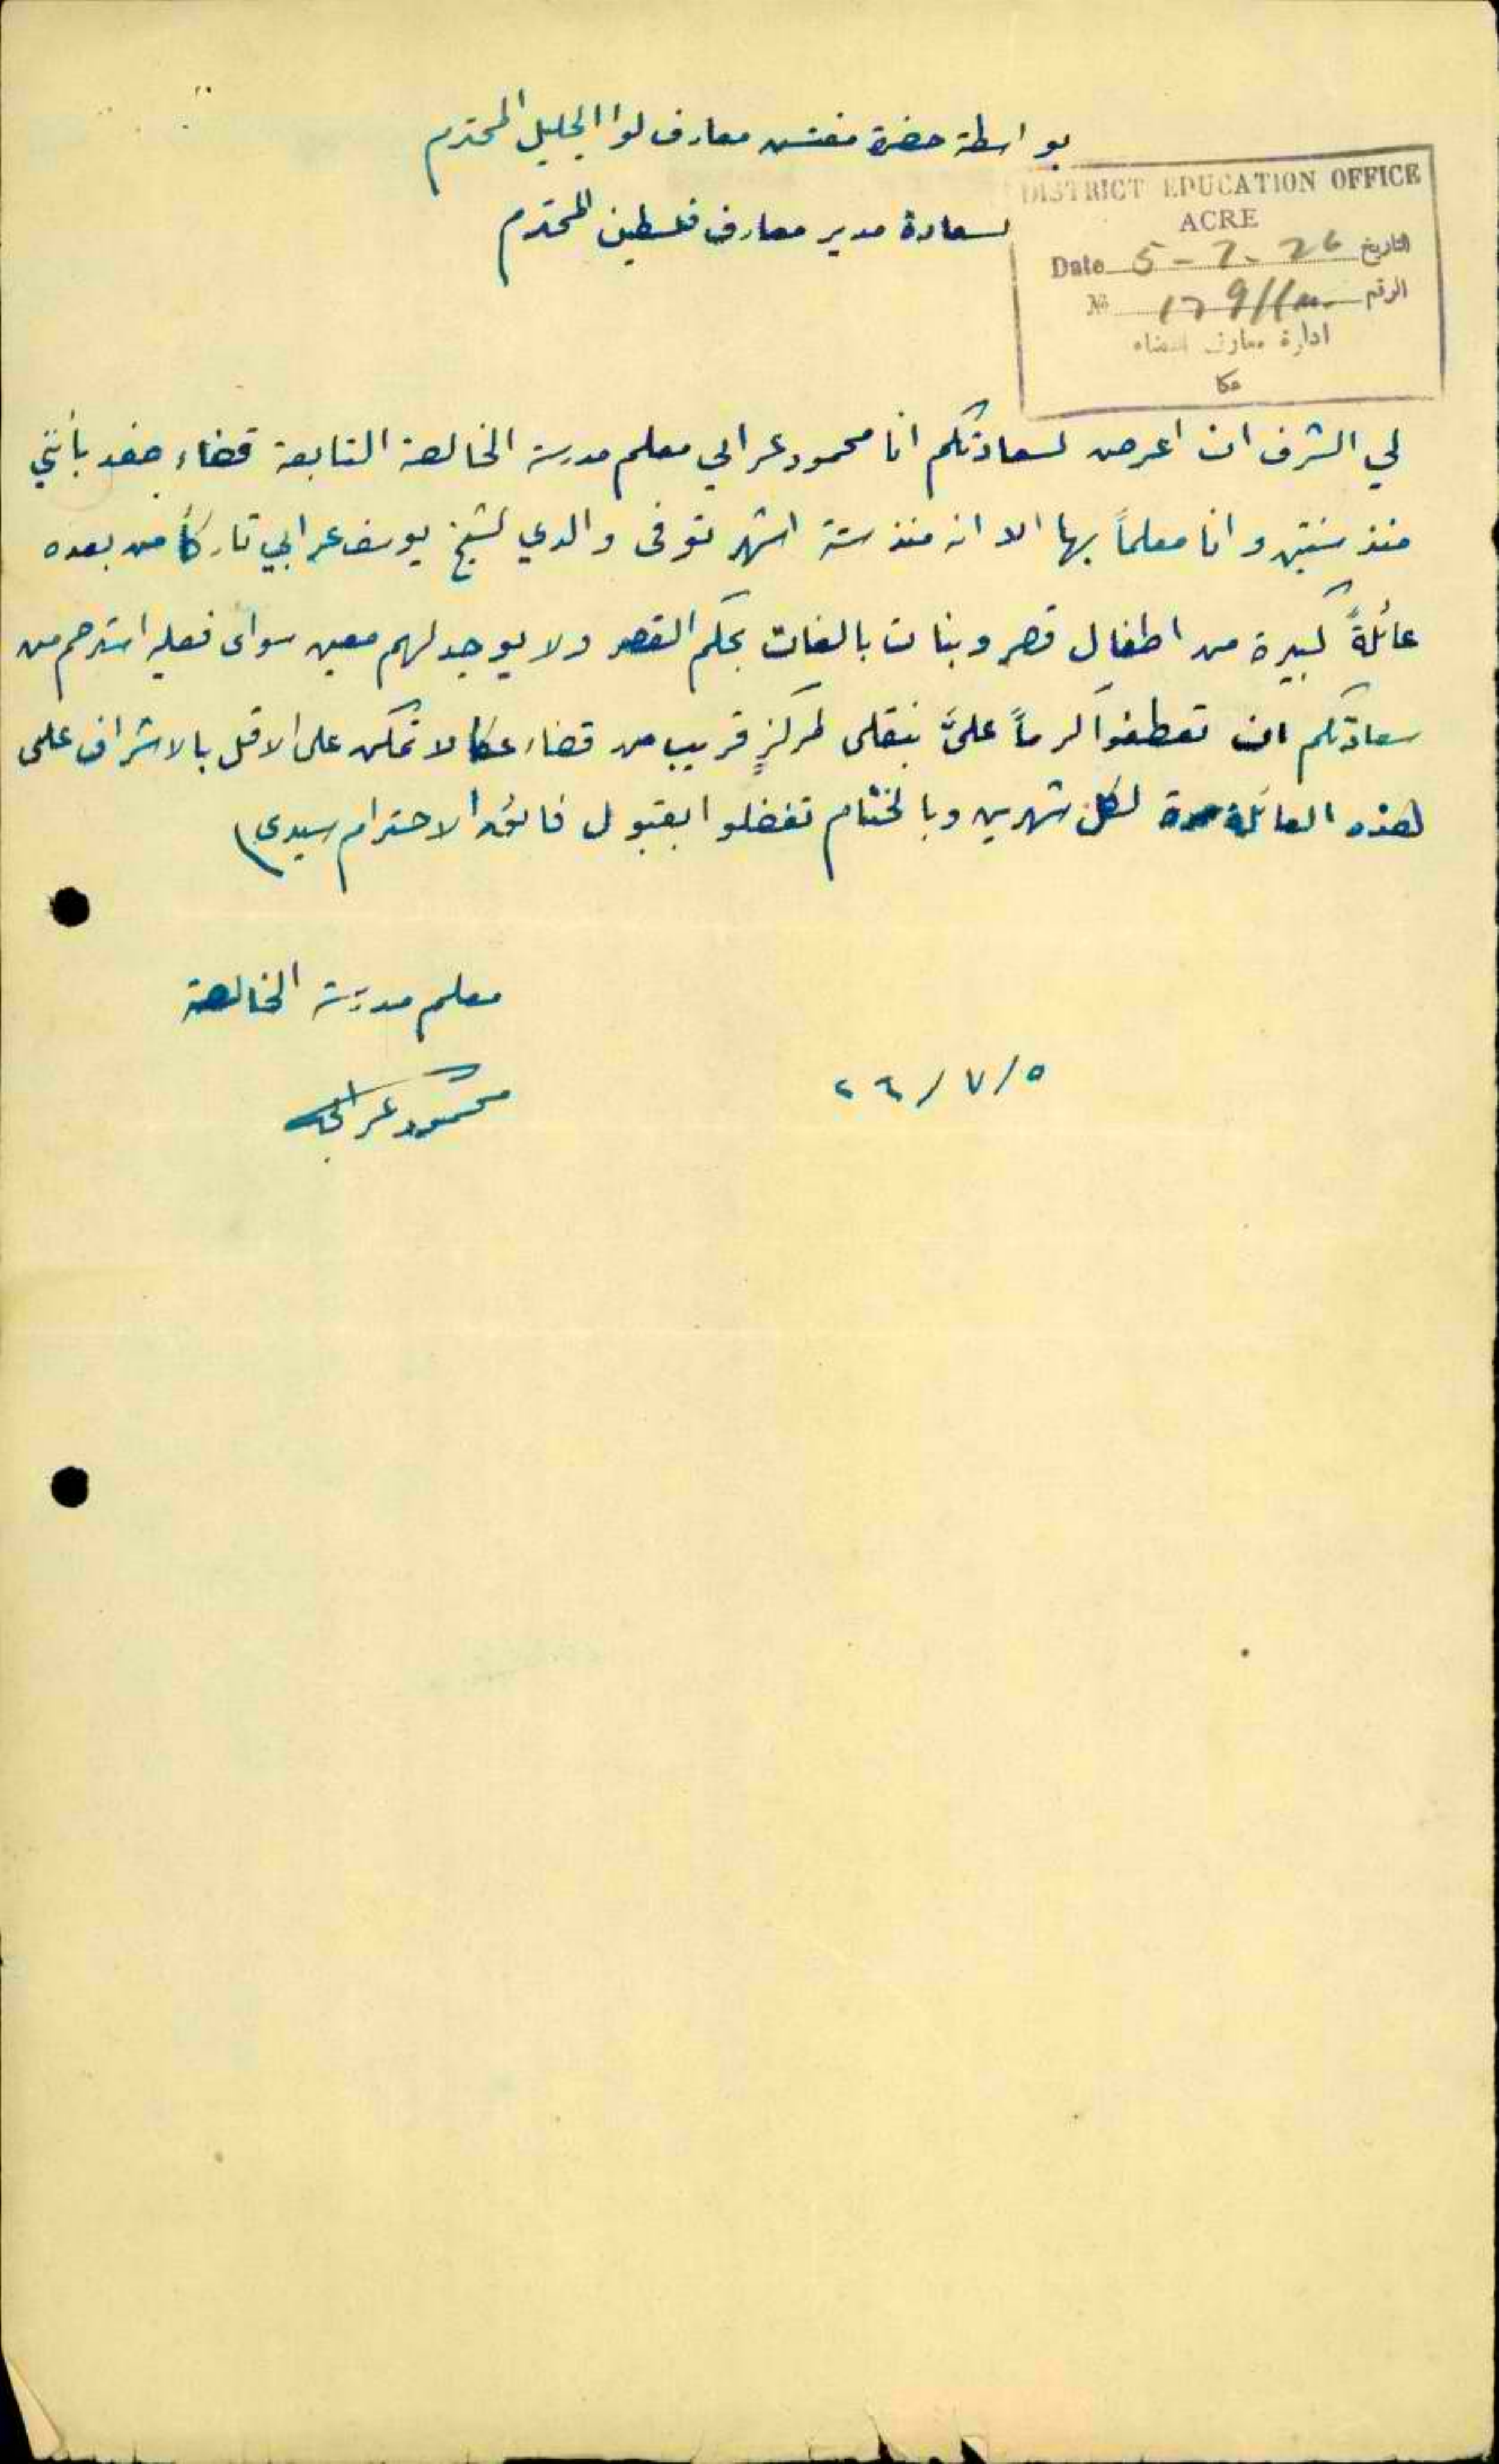 بواسطة حضرة مفتش معارف لوا الجليل المحترم
لسعادة مدير معارف فلسطين المحترم
DISTRICT EDUCATION OFFICE
ACRE
Date 5-7-26 التاريخ
№ الرقم
ادارة معارف قضاء
عكا
لي الشرف ان اعرض لسعادتكم انا محمود عرابي معلم مدرسة الخالصة التابعة قضاء صفد بأنني
منذ سنتين وانا معلماً بها الا انه منذ ستة اشهر توفى والدي لشيخ يوسف عرابي تاركاً من بعده
عائلةً كبيرة من اطفال قصر وبنات بالغات بحكم القصر ولا يوجد لهم معين سواى فعليه استرحم من
سعادتكم ان تعطفوا كرماً علىَّ بنقلى لمركزٍ قريب من قضاء عكا لاتمكن على الاقل بالاشراف على
هذه العائلة مرة لكل شهرين وبالختام تفضلوا بقبول فائق الاحترام سيدى
معلم مدرسة الخالصة
٥/ ٧/ ٢٦
محمود عرابي